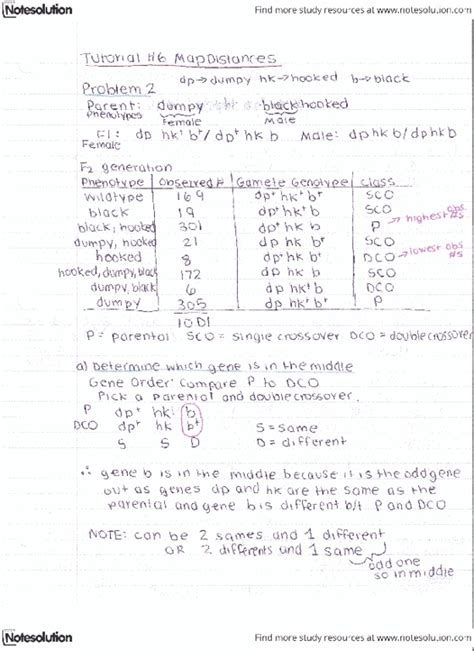 Notesolution
Find more study resources at www.notesolution.com
Tutorial #6 Map Distances
dp→dumpy hk→hooked b→black
Problem 2
Parent: dumpy black hooked
Phenotypes Female Male
F1: dp hk⁺ b⁺/ dp⁺ hk b Male: dp hk b/dp hk b
Female
F2 generation
Phenotype Observed # Gamete Genotype Class
wildtype 169 dp⁺ hk⁺ b⁺ SCO
black 19 dp⁺ hk⁺ b SCO
black, hooked 301 dp⁺ hk b P → highest obs #s
dumpy, hooked 21 dp hk b⁺ SCO
hooked 8 dp⁺ hk b⁺ DCO → lowest obs #s
hooked, dumpy, black 172 dp hk b SCO
dumpy, black 6 dp hk⁺ b DCO
dumpy 305 dp hk⁺ b⁺ P
1001
P = parental SCO = single crossover DCO = double crossover
a) Determine which gene is in the middle
Gene Order: Compare P to DCO
Pick a parental and double crossover.
P dp⁺ hk b
DCO dp⁺ hk b⁺ S = same
S S D D = different
∴ gene b is in the middle because it is the odd gene
out as genes dp and hk are the same as the
parental and gene b is different b/t P and DCO
NOTE: can be 2 sames and 1 different
OR 2 differents and 1 same
odd one
so in middle
Notesolution
Find more study resources at www.notesolution.com